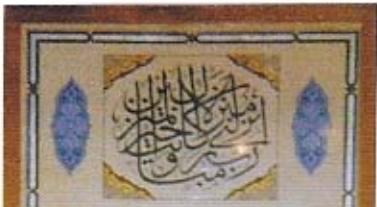 رب انزلني منزلا مباركا وانت خير المنزلين